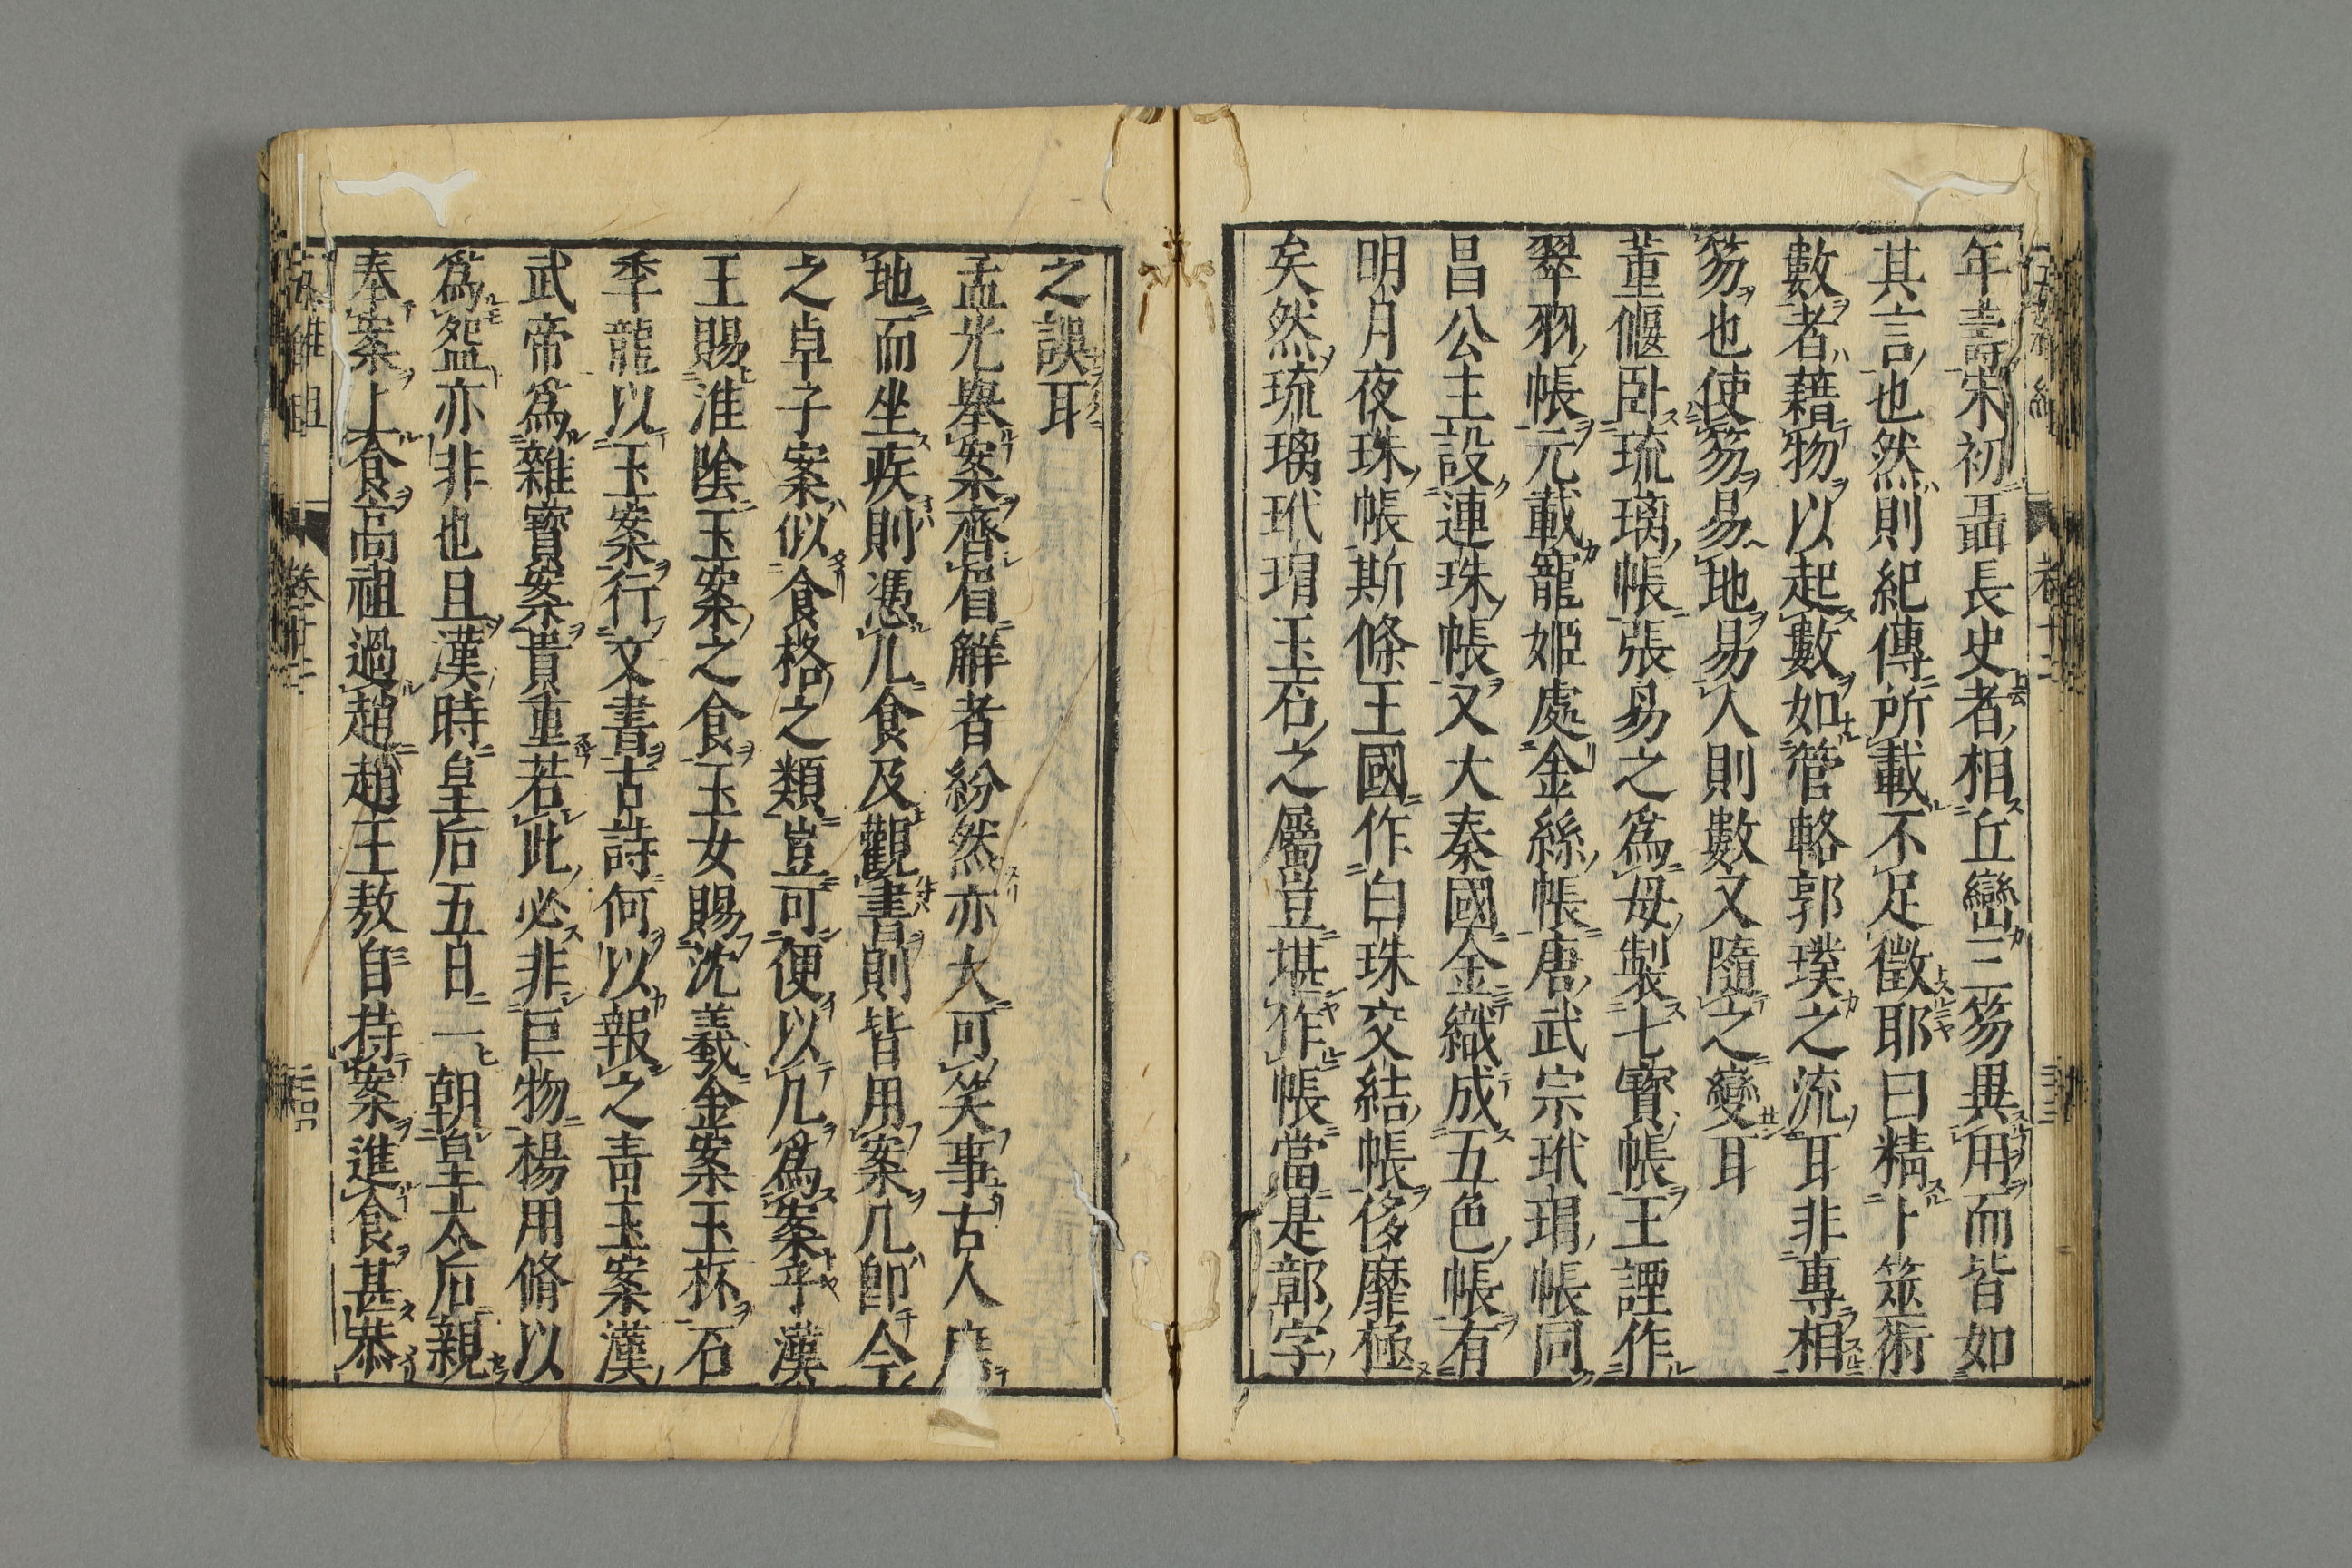 年壽宋初聶長史者相丘巒三笏異用而皆如
其言也然則紀傳所載不足徵耶曰精卜筮術
數者藉物以起數如管輅郭璞之流耳非專相
笏也使笏易地易人則數又隨之變耳
董偃卧琉璃帳張易之爲母製七寶帳王諲作
翠羽帳元載寵姬處金絲帳唐武宗玳瑁帳同
昌公主設連珠帳又大秦國金織成五色帳有
明月夜珠帳斯條王國作白珠交結帳侈靡極
矣然琉璃玳瑁玉石之屬豈堪作帳當是鄣字
之誤耳
孟光舉案齊眉解者紛然亦大可笑事古人席
地而坐疾則憑几食及觀書則皆用案几卽今
之卓子案似食格之類豈可便以几爲案乎漢
王賜淮陰玉案之食玉女賜沈羲金案玉杯石
季龍以玉案行文書古詩何以報之靑玉案漢
武帝爲雜寶案貴重若此必非巨物楊用脩以
爲盌亦非也且漢時皇后五日一朝皇太后親
奉案上食高祖過趙趙王敖自持案進食甚恭
五雜組 卷十二